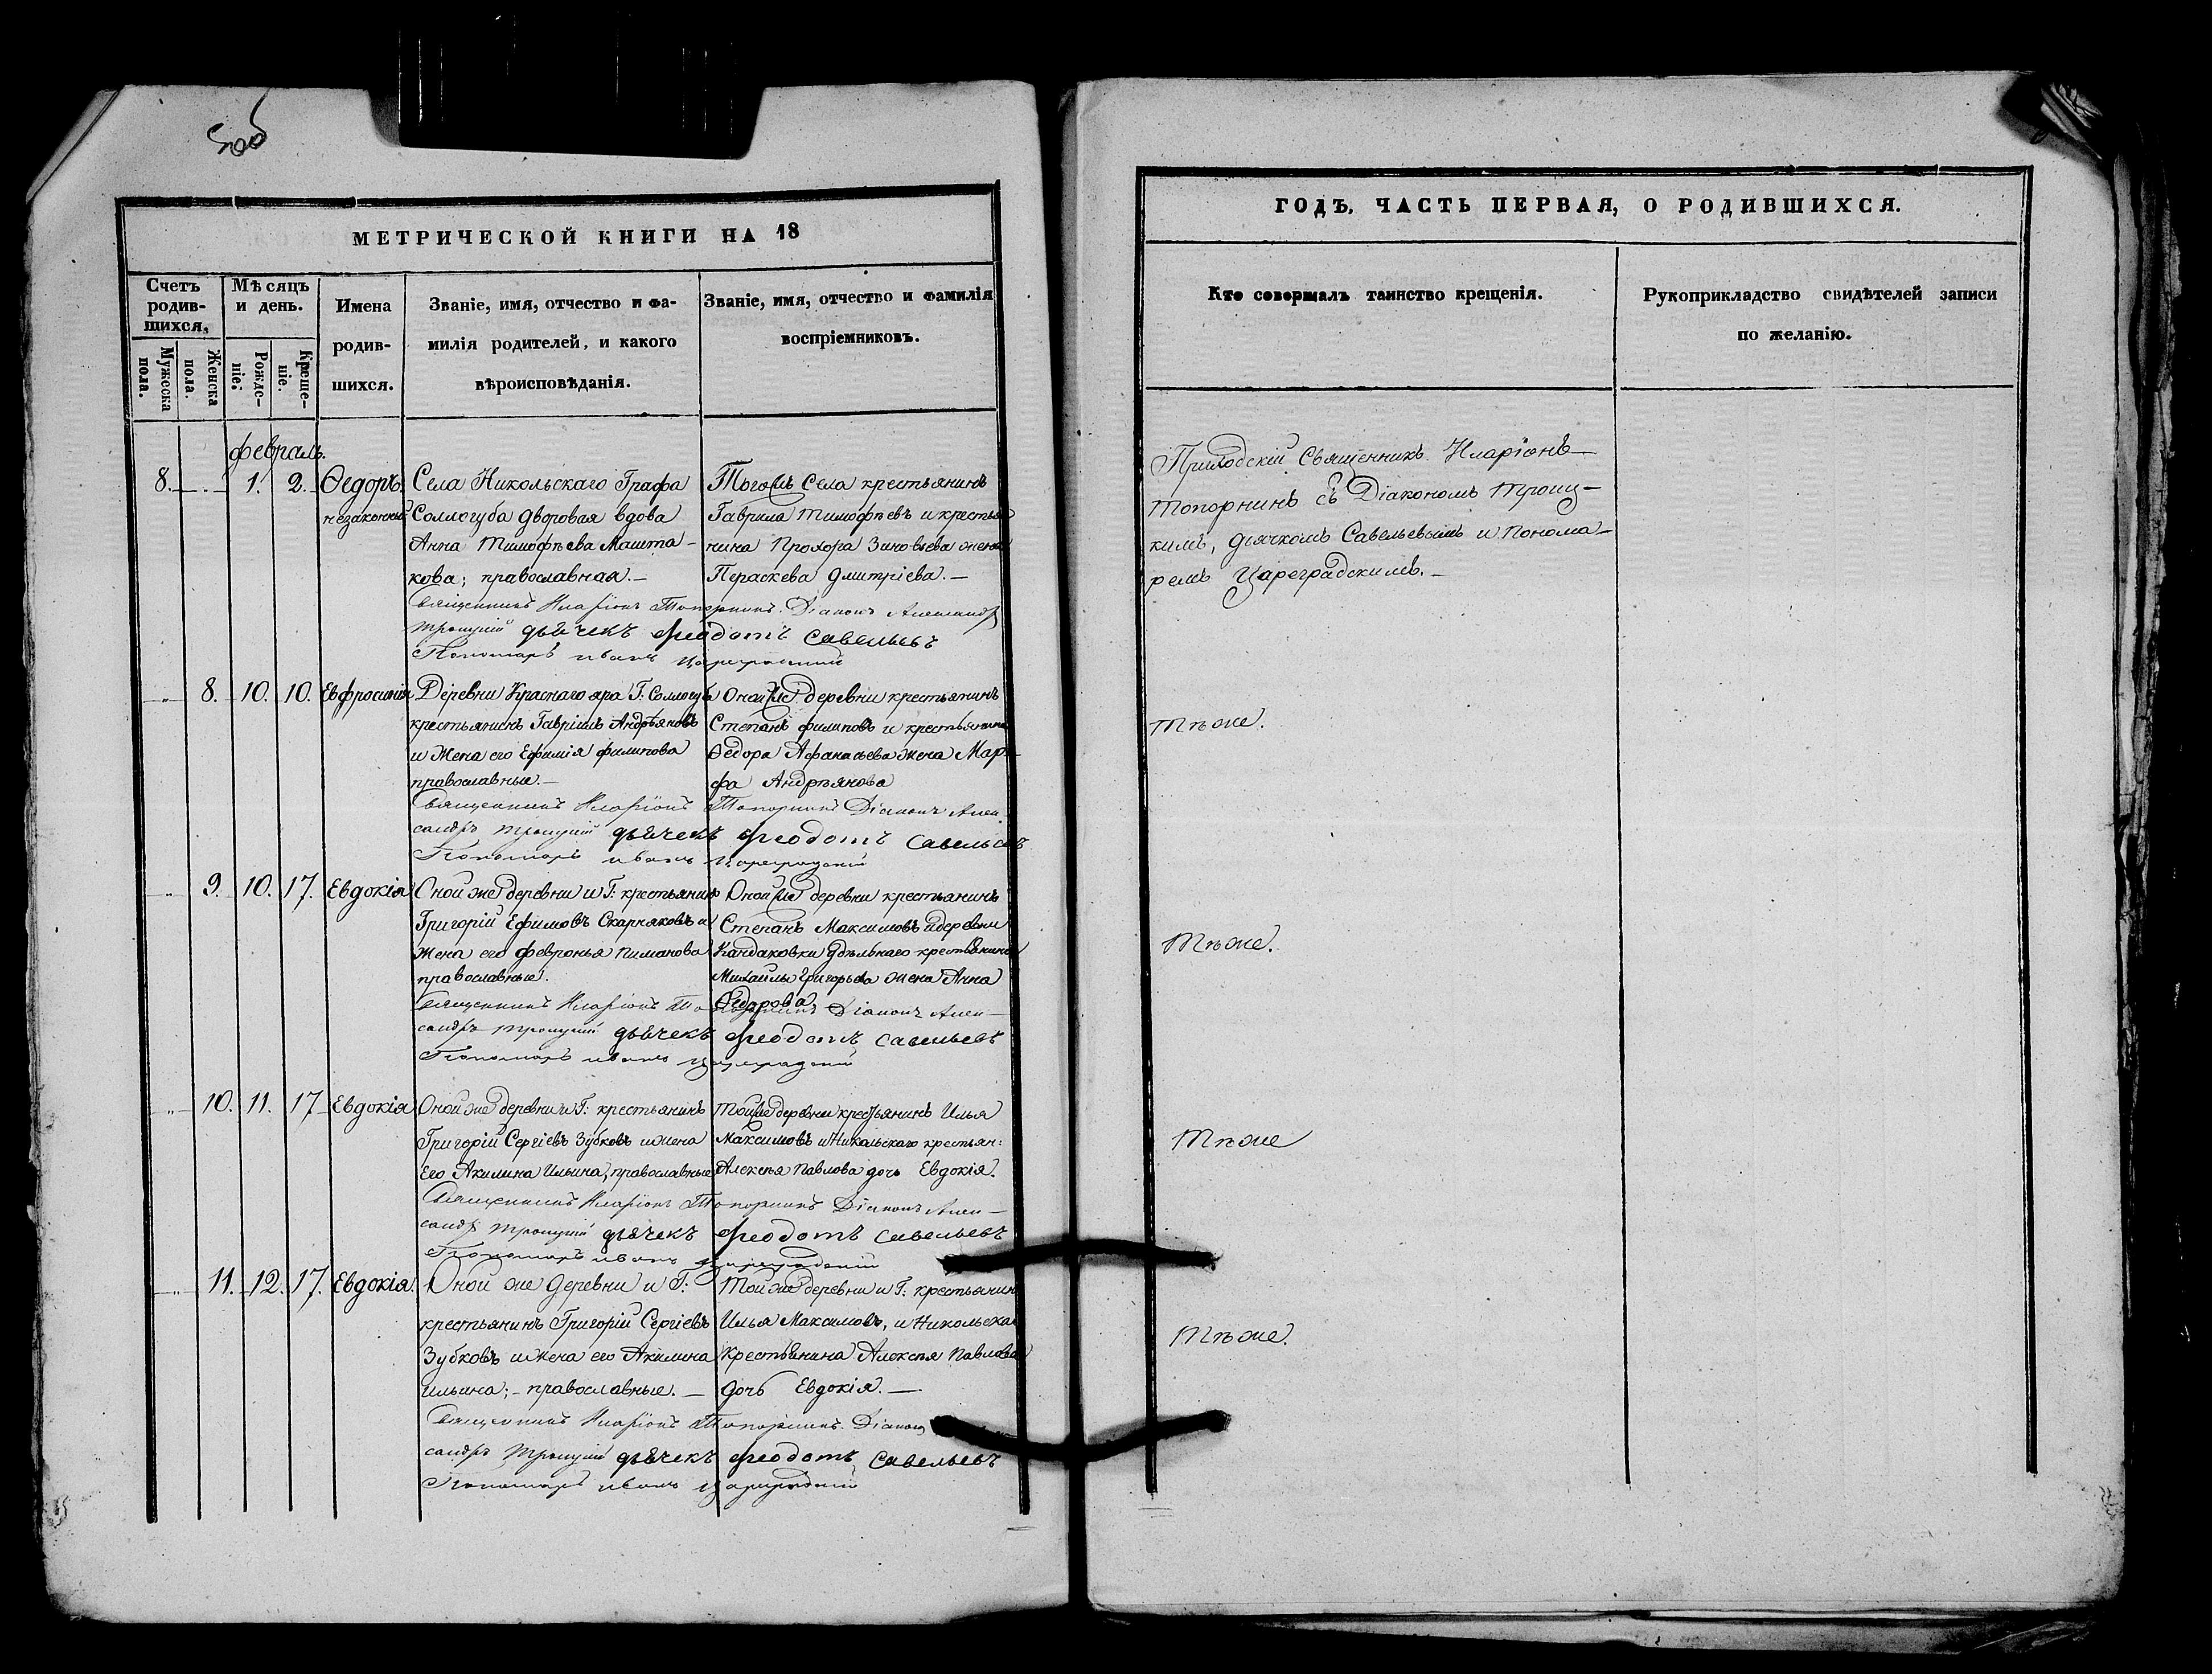 500
МЕТРИЧЕСКОЙ КНИГИ НА 18
Счетъ родив-шихся,
Мѣсяцъ и день.
Имена родив-шихся.
Званіе, имя, отчество и фа-
милія родителей, и какого
вѣроисповѣданія.
Званіе, имя, отчество и фамилія
воспріемниковъ.
Мужеска пола.
Женска пола.
Рожде-ніе.
Креще-ніе.
февраль.
8. 1. 2. Ѳедоръ
незаконный
Села Никольскаго Графа
Соллогуба дворовая вдова
Анна Тимофѣева Машта-
кова; православная.—
Тогожъ Села крестьянинъ
Гаврила Тимофѣевъ и крестья
нина Прохора Зиновьева жена
Пераскева Дмитріева.—
Священникъ Иларіонъ Топорнинъ. Діаконъ Александръ
Троицкій дьячекъ Феодотъ Савельевъ
Пономарь Иванъ Цареградскій
8. 10. 10. Евфросинія
Деревни Краснаго яра Г: Соллогуба
крестьянинъ Гавріилъ Андрѣяновъ
и Жена его Ефимія филипова
православные.—
Оной же деревни крестьянинъ
Степанъ филиповъ и крестьянина
Ѳедора Афанасьева жена Мар-
фа Андрѣянова
Священникъ Иларіонъ Топорнинъ Діаконъ Алек
сандръ Троицкій дьячекъ Феодотъ Савельевъ
Пономарь Иванъ Цареградскій
9. 10. 17. Евдокія
Оной же деревни и Г: крестьянинъ
Григорій Ефимовъ Скарняковъ и
жена его Февронья Пиманова
православные.
Оной же деревни крестьянинъ
Степанъ Максимовъ и деревни
Кандаковки удѣльнаго крестьянина
Михаилы Григорьева жена Анна
Ѳедорова
Священникъ Иларіонъ Топорнинъ Діаконъ Алек—
сандръ Троицкій дьячекъ Феодотъ Савельевъ
Пономарь Иванъ Цареградскій
10. 11. 17 Евдокія
Оной же деревни и Г: крестьянинъ
Григорій Сергіевъ Зубковъ и жена
Его Акилина Ильина, православные
Той же деревни крестьянинъ Илья
Максимовъ и Никольскаго крестьян:
Алексѣя Павлова дочь Евдокія.
Священникъ Иларіонъ Топорнинъ Діаконъ Алек—
сандръ Троицкій дьячекъ Феодотъ Савельевъ
Пономарь Иванъ Цареградскій
11. 12. 17. Евдокія.
Оной же деревни и Г:
крестьянинъ Григорій Сергіевъ
Зубковъ и жена его Акилина
Ильина;- православные.—
Той же деревни и Г: крестьянин
Илья Максимовъ, и Никольска
крестьянина Алексѣя Павлова
дочь Евдокія.—
Священникъ Иларіонъ Топорнинъ. Діаконъ
сандръ Троицкій дьячекъ Феодотъ Савельевъ
Пономарь Иванъ Цареградскій
ГОДЪ, ЧАСТЬ ПЕРВАЯ, О РОДИВШИХСЯ.
Кто совершалъ таинство крещенія.
Рукоприкладство свидѣтелей записи
по желанію.
Приходскій Священникъ Иларіонъ—
Топорнинъ съ Діакономъ Троиц-
кимъ, дьячкомъ Савельевымъ и Понома-
ремъ Цареградскимъ.—
Тѣже.
Тѣже.
Тѣже
Тѣже.